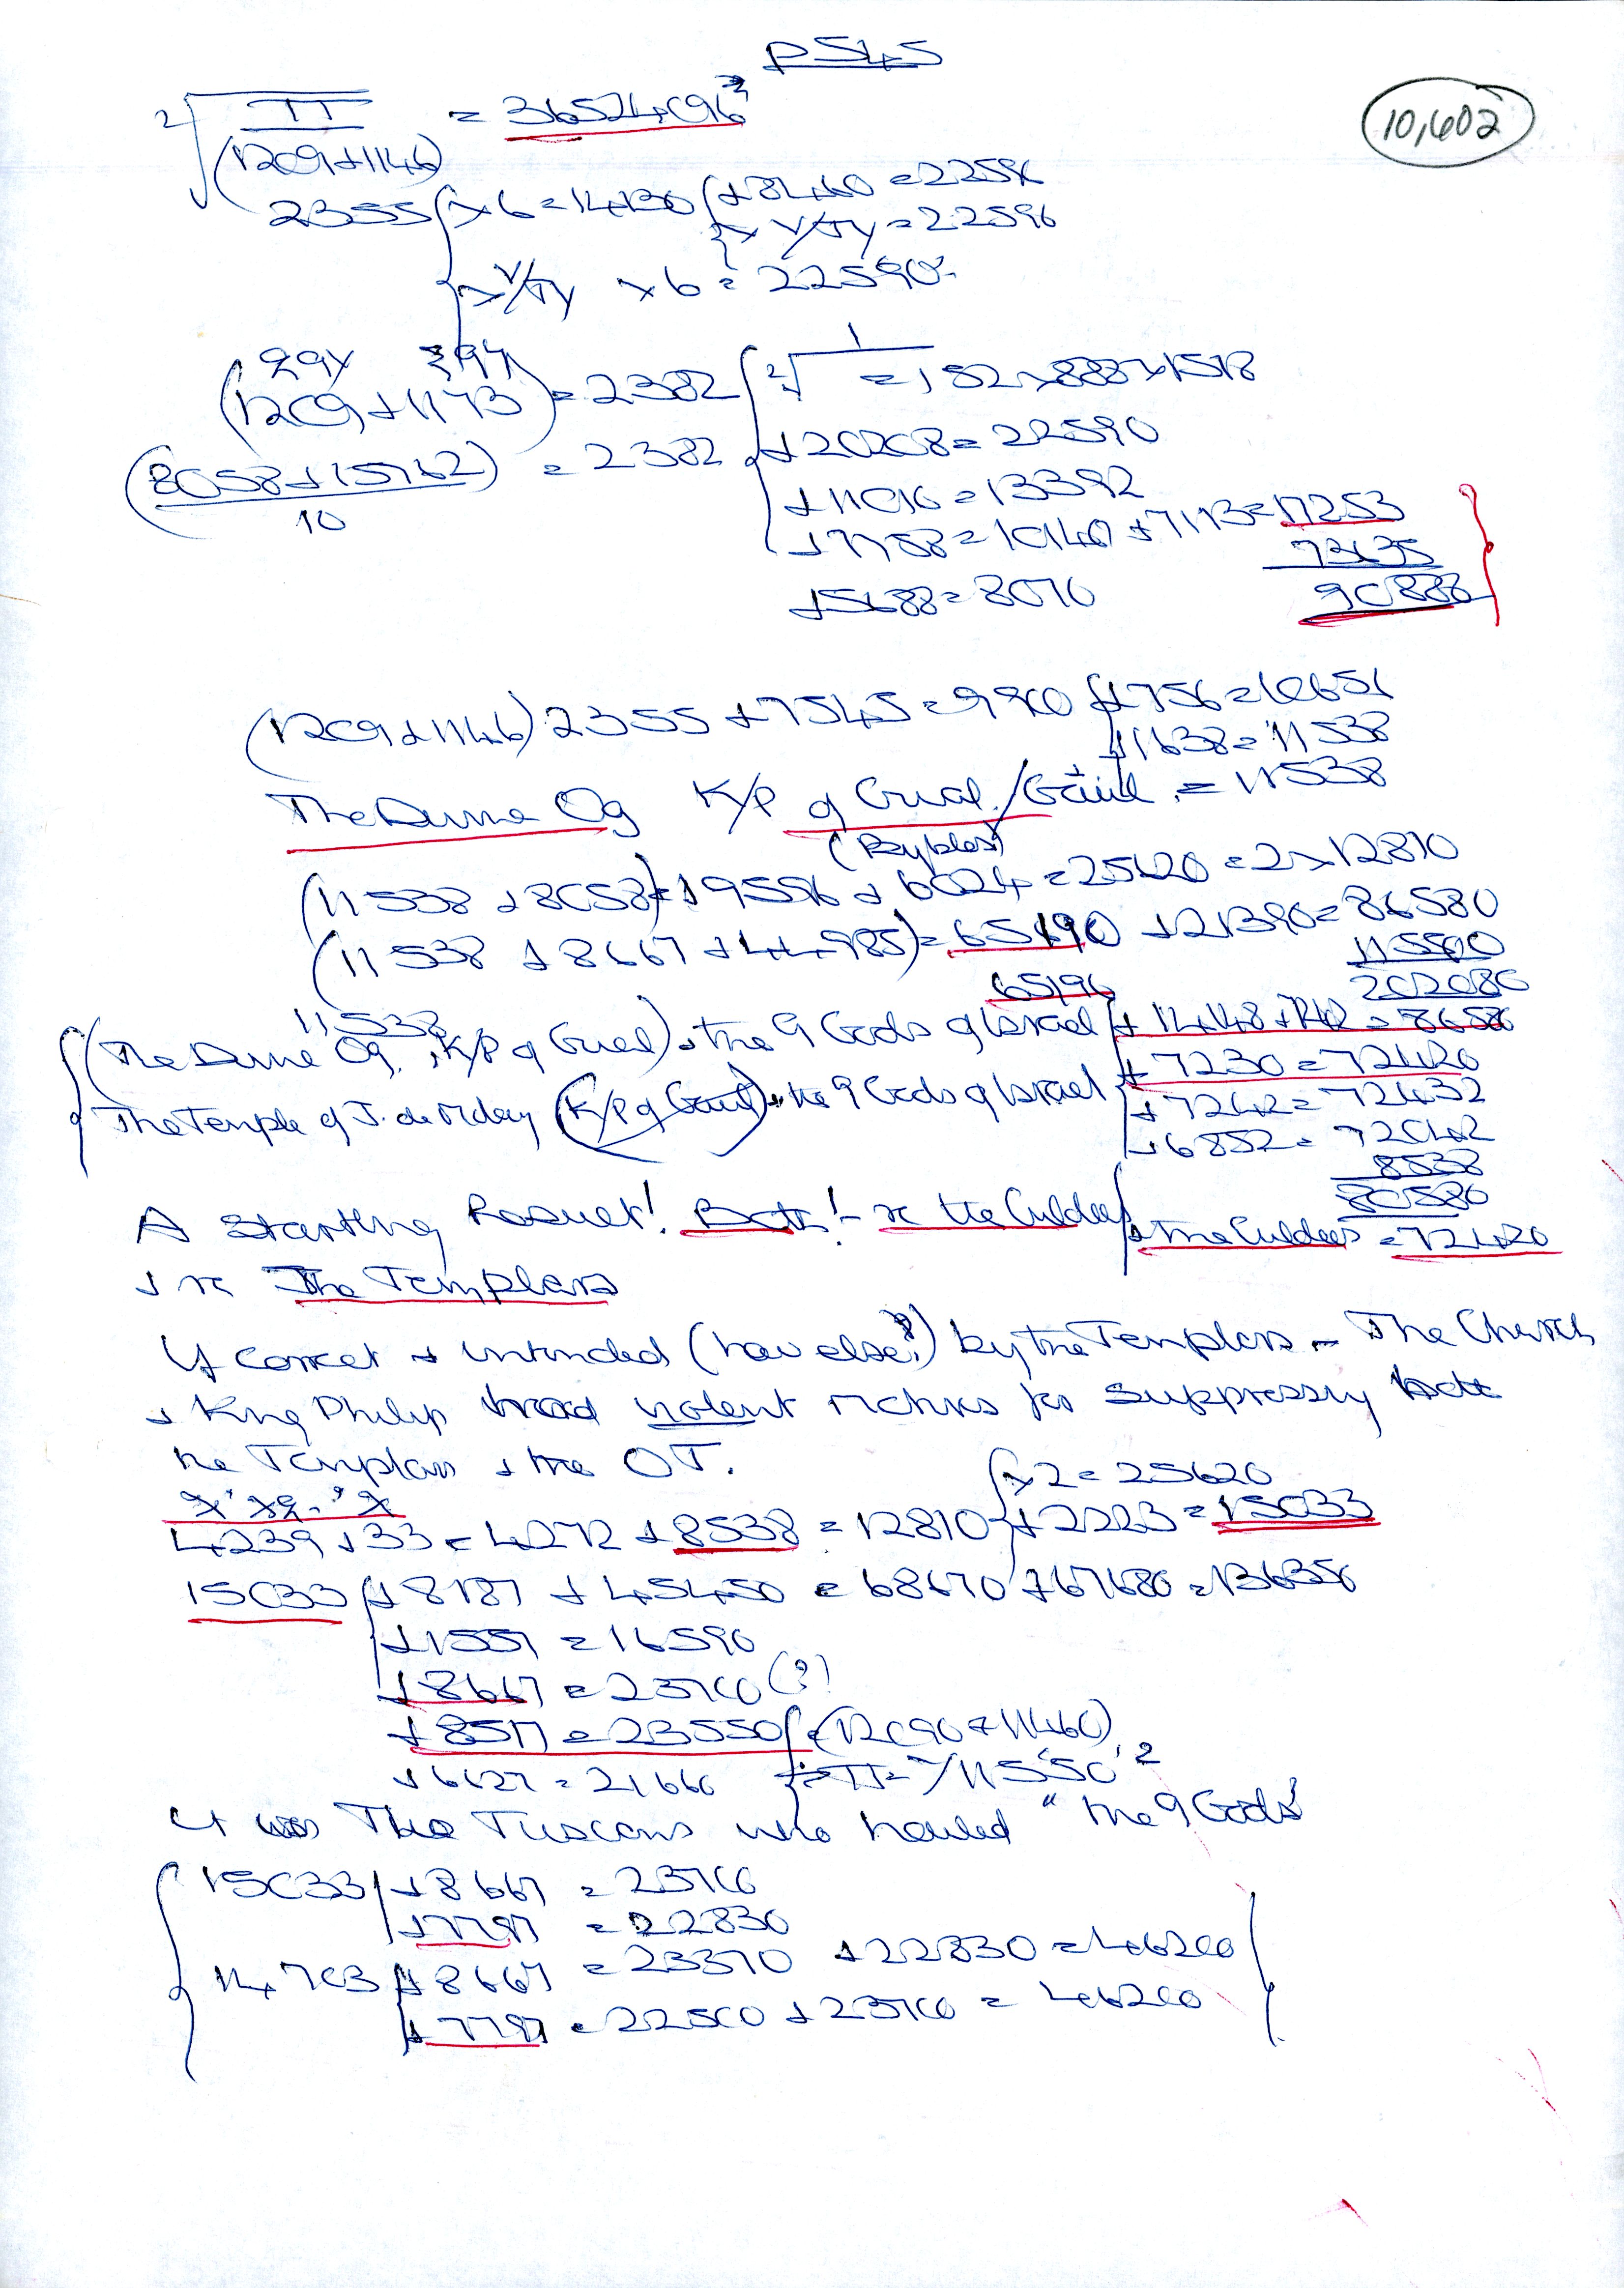 P545
10,602
²√ π/(1209+1146) = 36524096
2355 { x 6 = 14130 { +8460 = 22590
x 6 = 22590
(1209+1173) = 2382 { ²√ 1
(8058+15762)/10 = 2382 +20208 = 22590
+11010 = 13392
+7758 = 10140 +7113 = 17253
73635
+5688 = 8070 90888
(1209+1146) 2355 +7545 = 9900 { +756 = 10656
+1638 = 11538
K/P of = 11538
(11538 +8058) = 19596 + 6024 = 25620 = 2 x 12810
(11538 +8667 +44985) = 65190 +21390 = 86580
115500
202080
11538 65190
K/P of + the 9 Gods of Israel
+7230 = 72420
The Temple of J. de Molay (K/P of Gaul) + the 9 Gods of Israel +7242 = 72432
+6852 = 72042
8538
80580
A Startling Result! Both! - re the Culdees + the Culdees = 72420
+ re The Templars
If correct + intended (how else?) by the Templars - The Church
+ King Philip had violent motives for suppressing both
the Templars + the OT.
{ x 2 = 25620
4239 +33 = 4272 +8538 = 12810 +2223 = 15033
15033 { +8187 +45450 = 68670 +67680 = 136350
+1557 = 16590
+8667 = 23700 (?)
+8517 = 23550 { = (12090 + 11460)
+6627 = 21660
It was The Tuscans who hailed "the 9 Gods"
15033 +8667 = 23700
+7797 = 22830
14703 +8667 = 23370 +22830 = 46200
+7797 = 22500 +23700 = 46200